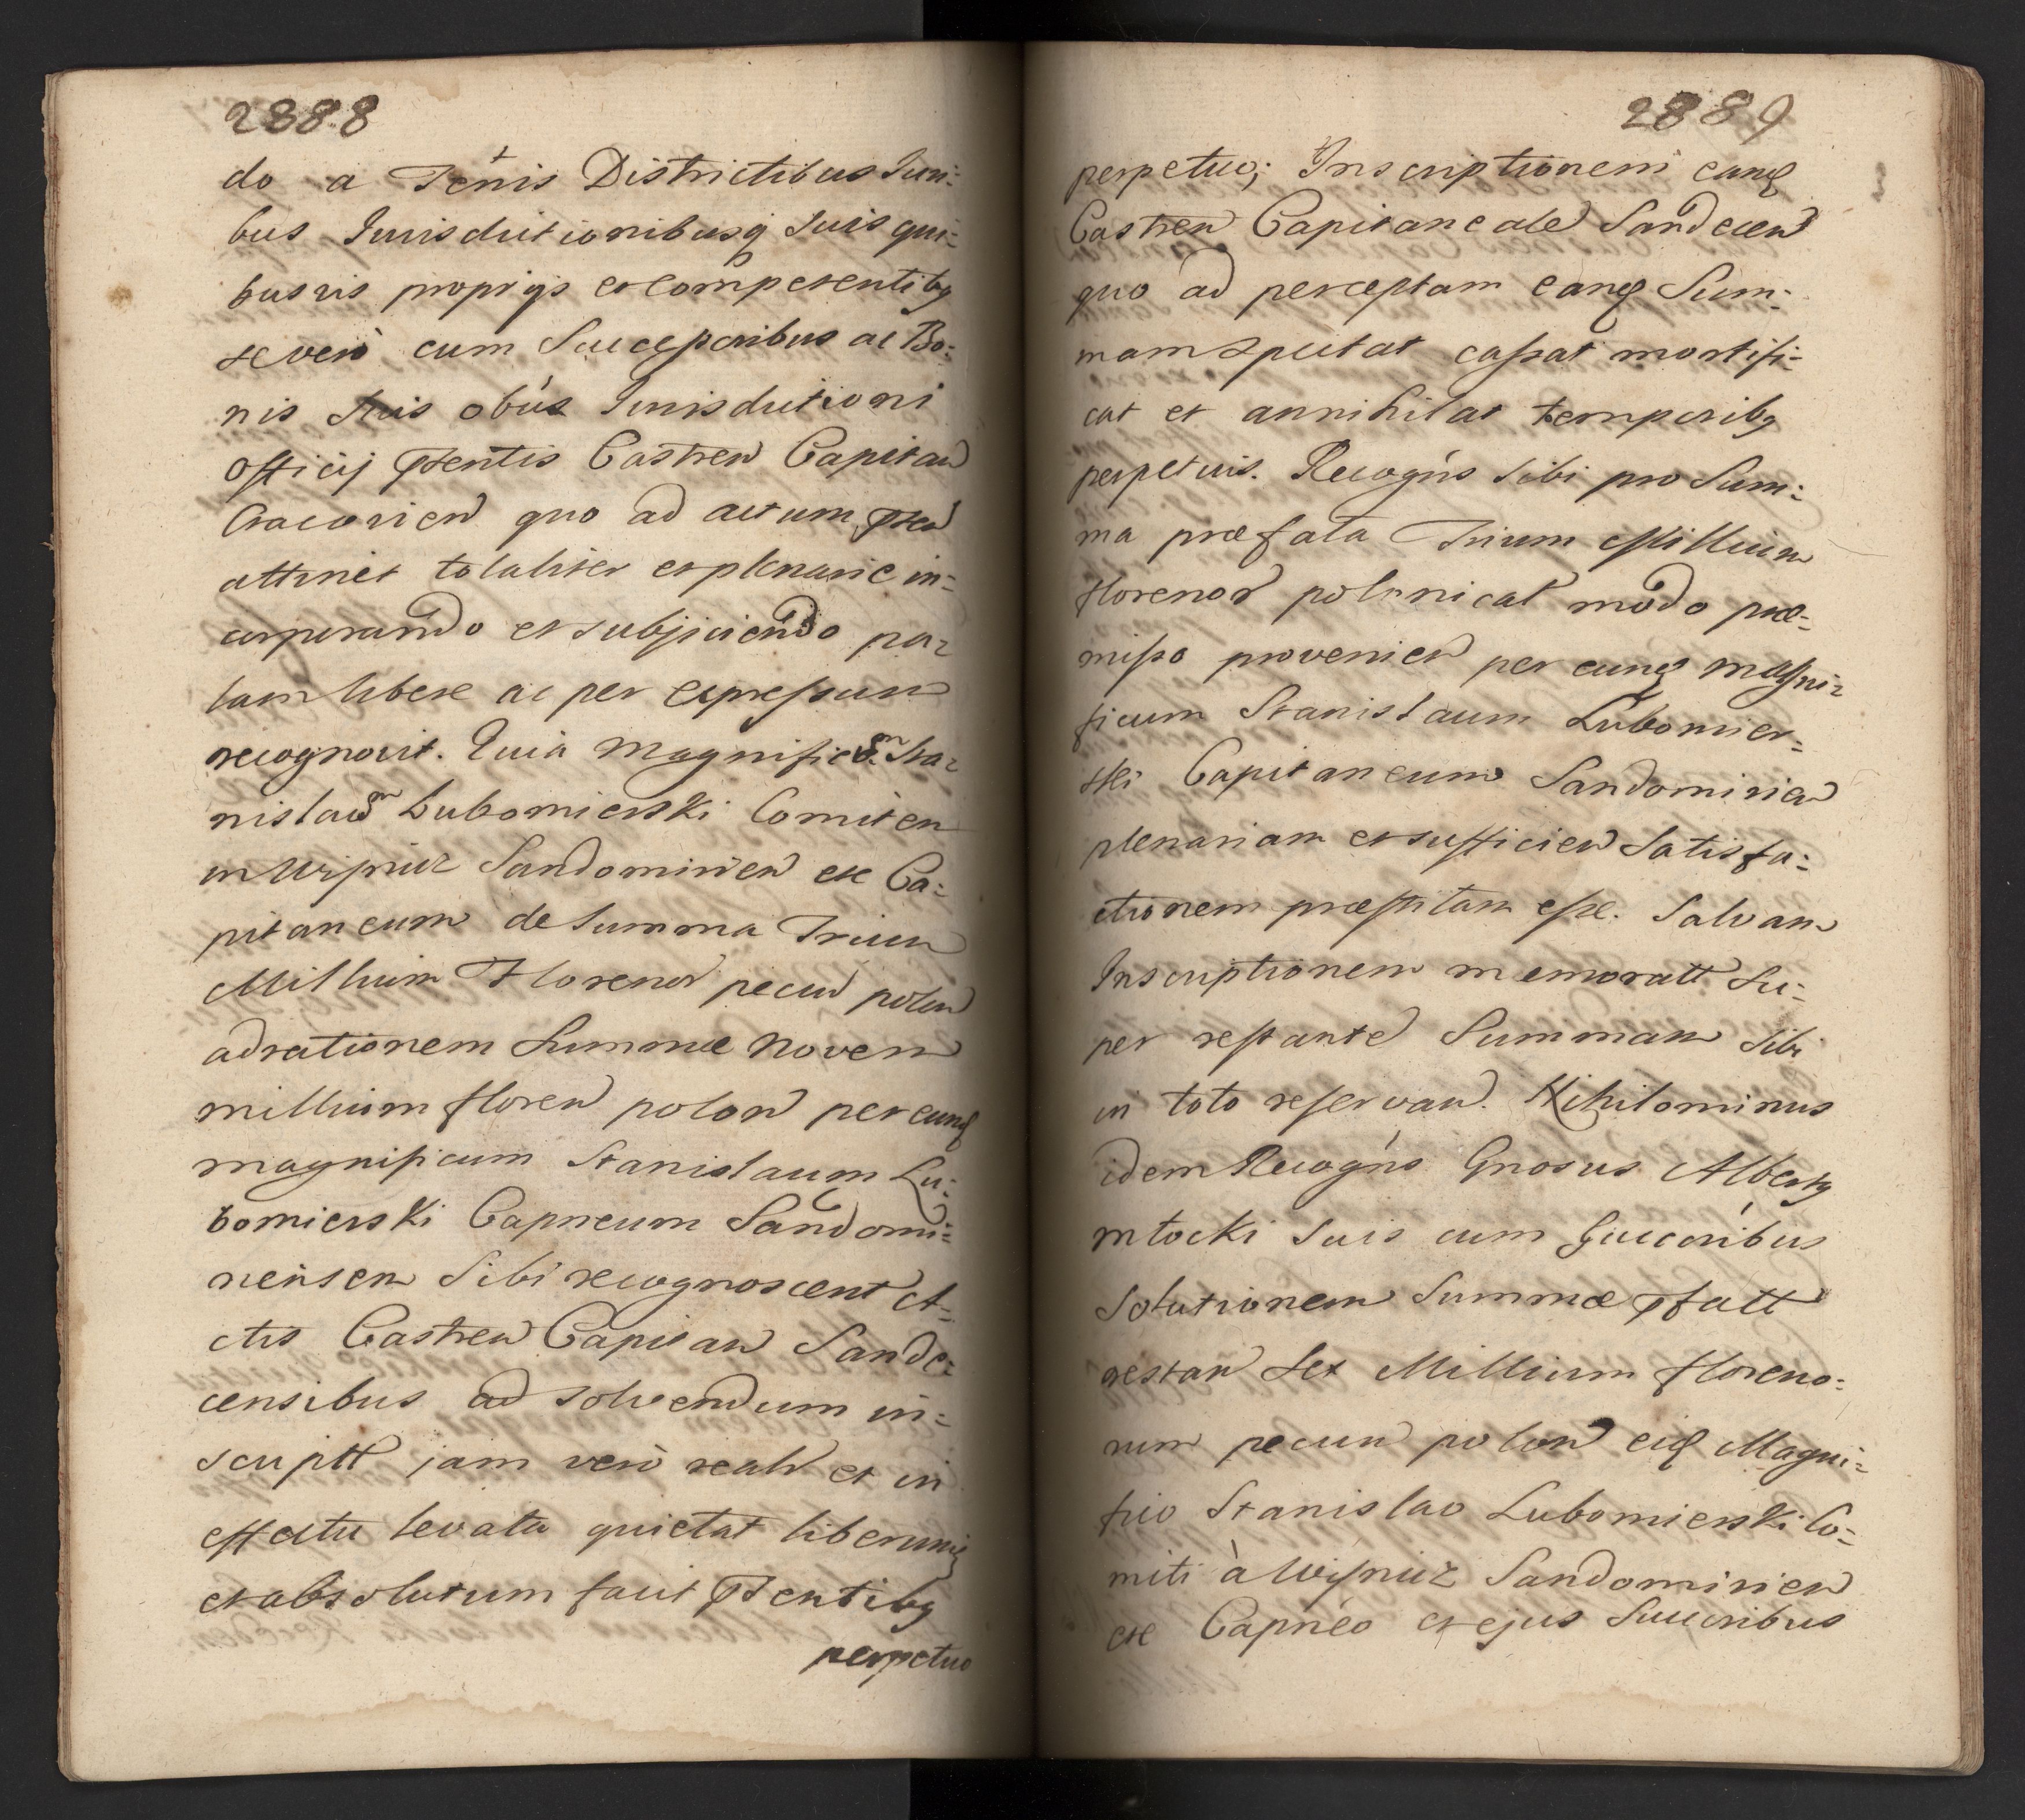 2888
do a Ténis Districtibus Juri:
bus Jurisdictionibusq suis qui:
busvis proprijs et Competentibq
se vero cum Successoribus ac Bo:
nis suis obus Jurisdictioni
Officij pñtentis Castren Capitan
Cracovien quo ad actum pñten
attinet totaliter et plenarie in=
corporando et subjiciendo pa=
lam libere ac per expressum
recognovit. Quia Magnificum Sta=
nislaum Lubomierski Comitem
in Wisnicz Sandomirien etc Ca=
pitaneum de Summa Trium
Millium Florenor pecun polon
ad rationem Summæ Novem
millium floren polon per eundq
magnificum Stanislaum Lu:
bomierski Capneum Sandomi=
riensem Sibi recognoscent A=
ctis Castren Capitan Sande:
censibus ad solvendum in=
scriptt jam vero realr et in
effectu levata quietat liberumq
et absolutum facit pñtentibq
perpetuo
2889
perpetuo; Inscriptionem eandq
Castren Capitaneale Sandecen
quo ad perceptam eandq Sum:
mam Spectat cassat mortifi=
cat et annihilat temporibq
perpetuis. Recogńs sibi pro Sum:
ma præfata Trium Millium
florenor polonical modo præ=
misso provenien per eundq Magni=
ficum Stanislaum Lubomier=
ski Capitaneum Sandomirien
plenariam et sufficien Satisfa:
ctionem præstitam esse. Salvam
Inscriptionem memoratt Su=
per restante Summam Sibi
in toto reservan. Nihilominus
idem Recogńs Gnosus Albertq
Młocki suis cum Succoribus
Solutionem Summæ pfatt
restan Sex Millium floreno=
rum pecun polon eidq Magni=
fico Stanislao Lubomierski Co=
miti à Wisnicz Sandomirien
etc Capnéo et ejus Succoribus